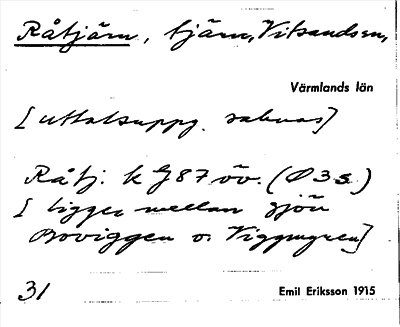 Råtjärn, tjärn, Vitsands sn,
Värmlands län
[uttalsuppg. saknas]
Råtj. k G 87 öv. (Ø 3 s.)
[ligger mellan sjön
Boviggen o. Viggmyren]
31
Emil Eriksson 1915